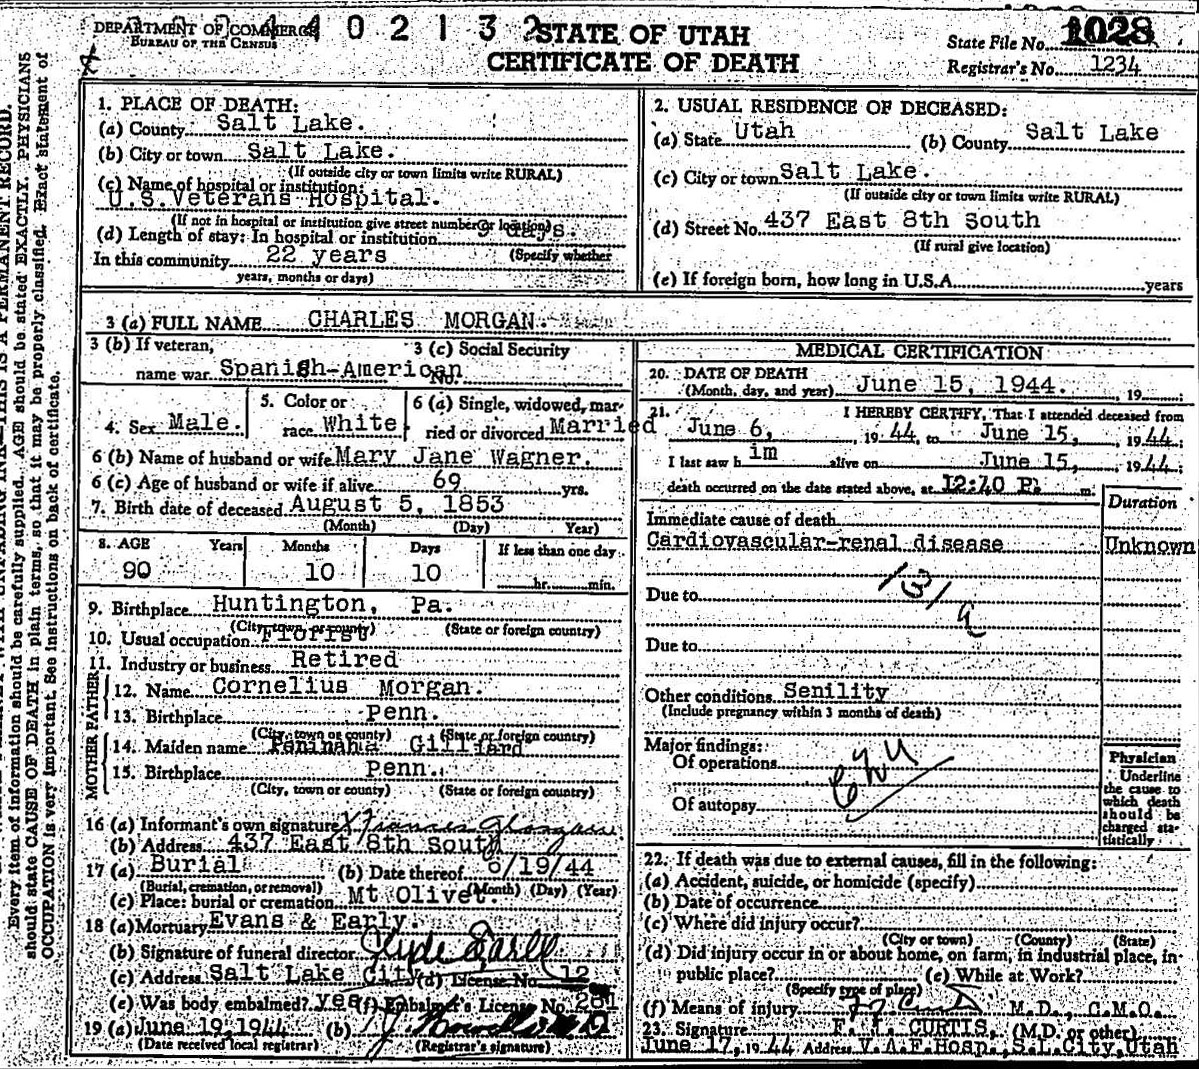 DEPARTMENT OF COMMERCE
BUREAU OF THE CENSUS
4 0 2 1 3 2
STATE OF UTAH
CERTIFICATE OF DEATH
State File No. 1028
Registrar's No. 1234
1. PLACE OF DEATH:
(a) County Salt Lake.
(b) City or town Salt Lake.
(If outside city or town limits write RURAL)
(c) Name of hospital or institution:
U.S.Veterans Hospital.
(If not in hospital or institution give street number or location)
(d) Length of stay: In hospital or institution 9 days.
In this community 22 years (Specify whether
years, months or days)
2. USUAL RESIDENCE OF DECEASED:
(a) State Utah (b) County Salt Lake
(c) City or town Salt Lake.
(If outside city or town limits write RURAL)
(d) Street No. 437 East 8th South
(If rural give location)
(e) If foreign born, how long in U.S.A. years
3 (a) FULL NAME CHARLES MORGAN.
3 (b) If veteran, 3 (c) Social Security
name war Spanish-American No.
4. Sex Male. 5. Color or race White 6 (a) Single, widowed, married or divorced Married
6 (b) Name of husband or wife Mary Jane Wagner.
6 (c) Age of husband or wife if alive 69 yrs.
7. Birth date of deceased August 5, 1853
(Month) (Day) Year)
8. AGE Years Months Days If less than one day
90 10 10 hr. min.
9. Birthplace Huntington, Pa.
(City, town, or county) (State or foreign country)
10. Usual occupation Florist
11. Industry or business Retired
FATHER
12. Name Cornelius Morgan.
13. Birthplace Penn.
(City, town or county) (State or foreign country)
MOTHER
14. Maiden name Peninaha Gilliard
15. Birthplace Penn.
(City, town or county) (State or foreign country)
16 (a) Informant's own signature X Frances
(b) Address 437 East 8th South
17 (a) Burial (b) Date thereof 6/19/44
(Burial, cremation, or removal) (Month) (Day) (Year)
(c) Place: burial or cremation Mt Olivet.
18 (a) Mortuary Evans & Early.
(b) Signature of funeral director Clyde Early
(c) Address Salt Lake City (d) License No. 12
(e) Was body embalmed? yes (f) Embalmer's License No. 261
19 (a) June 19, 1944 (b) M D
(Date received local registrar) (Registrar's signature)
MEDICAL CERTIFICATION
20. DATE OF DEATH
(Month, day, and year) June 15, 1944. , 19 ;
21. I HEREBY CERTIFY, That I attended deceased from
June 6, , 19 44, to June 15, , 19 44;
I last saw h im alive on June 15, , 19 44;
death occurred on the date stated above, at 12:10 P. m.
Duration
Immediate cause of death
Cardiovascular-renal disease Unknown
131
a
Due to
Due to
Other conditions Senility
(Include pregnancy within 3 months of death)
Major findings:
Of operations
Of autopsy
Physician
Underline
the cause to
which death
should be
charged sta-
tistically
22. If death was due to external causes, fill in the following:
(a) Accident, suicide, or homicide (specify)
(b) Date of occurrence
(c) Where did injury occur?
(City or town) (County) (State)
(d) Did injury occur in or about home, on farm, in industrial place, in
public place? (e) While at Work?
(Specify type of place)
(f) Means of injury M.D., C.M.O.
23. Signature F. F. CURTIS, (M.D. or other)
June 17, 19 44 Address V.A.F.Hosp., S.L.City, Utah
Every item of information should be carefully supplied. AGE should be stated EXACTLY. PHYSICIANS
should state CAUSE OF DEATH in plain terms, so that it may be properly classified. Exact statement of
OCCUPATION is very important. See instructions on back of certificate.